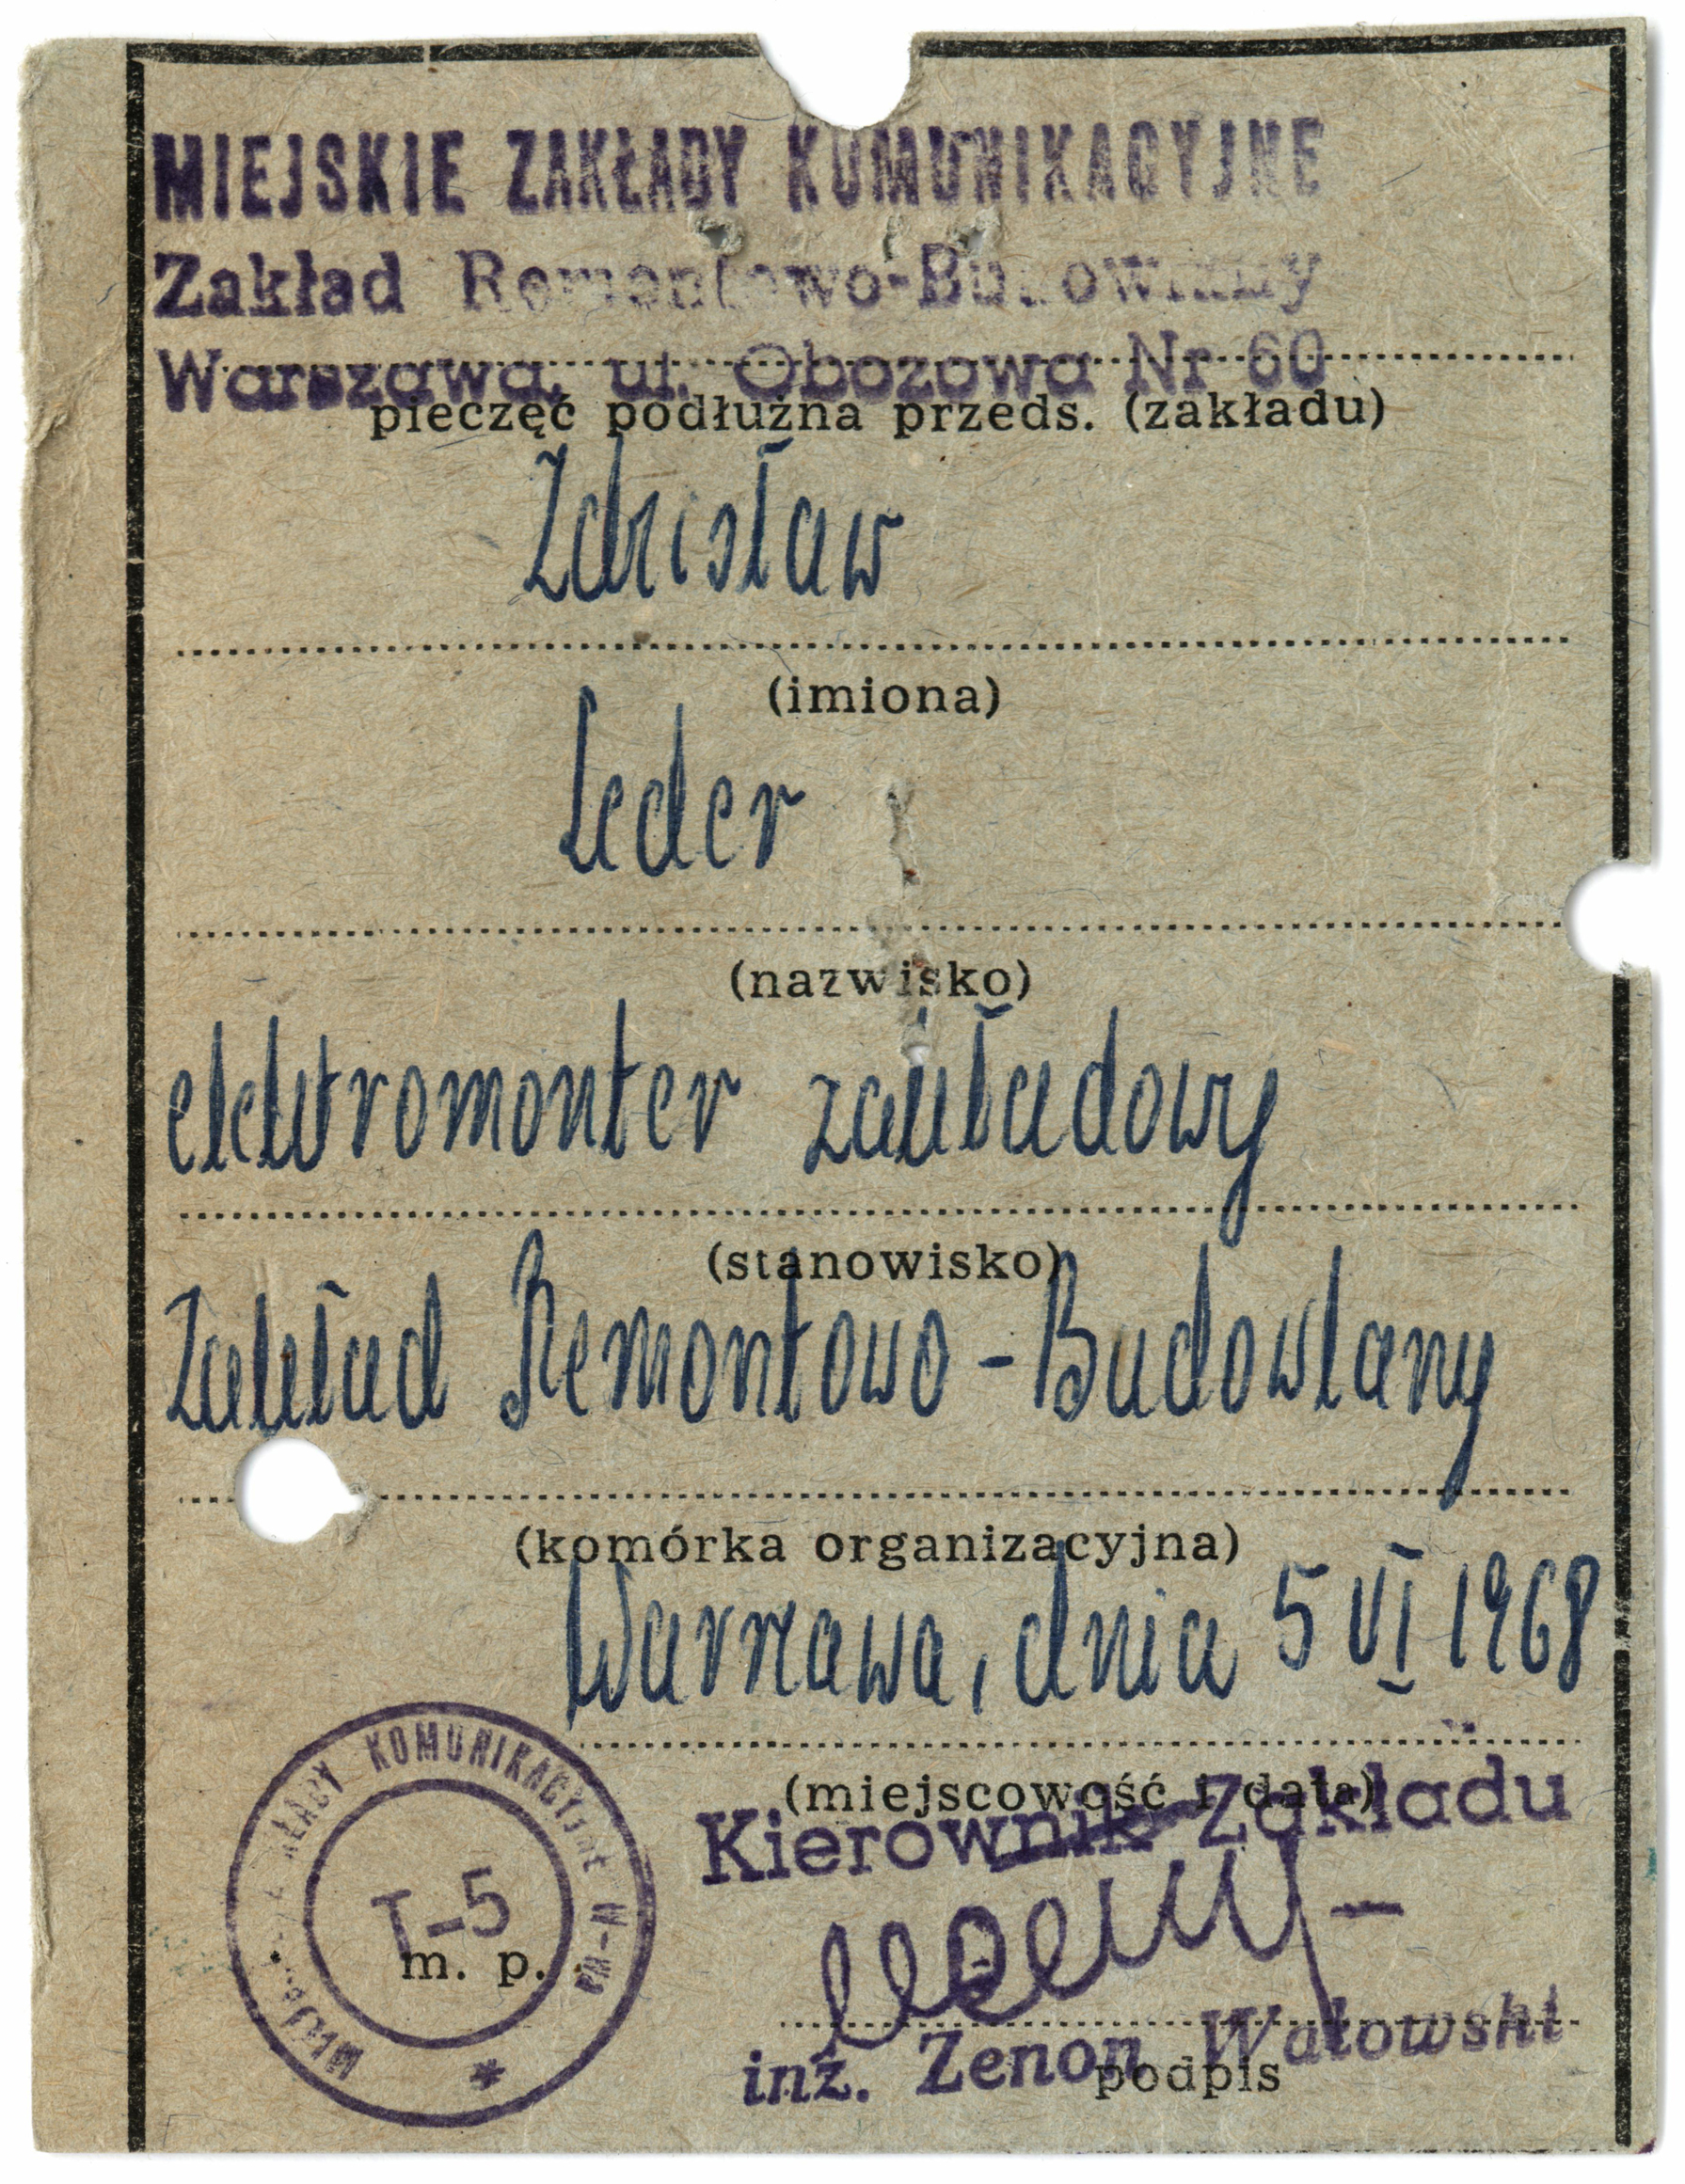 MIEJSKIE ZAKŁADY KOMUNIKACYJNE
Zakład Remontowo-Budowlany
Warszawa, ul. Obozowa Nr 60
pieczęć podłużna przeds. (zakładu)
Zdzisław
(imiona)
Leder
(nazwisko)
elektromonter zakładowy
(stanowisko)
Zakład Remontowo-Budowlany
(komórka organizacyjna)
Warszawa, dnia 5 VI 1968
(miejscowość i data)
Kierownik Zakładu
KOMUNIKACYJNE W-WA
T-5
m. p.
inż. Zenon Wałowski
podpis